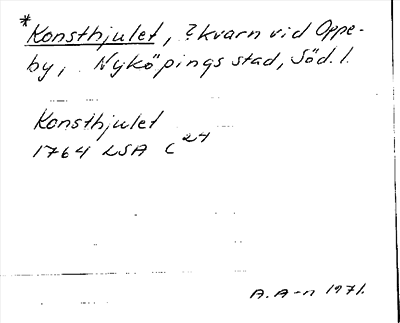 *Konsthjulet, ?kvarn vid Oppe-
by, Nyköpings stad, Söd. l.
Konsthjulet
1764 LSA C24
A. A-n 1971.